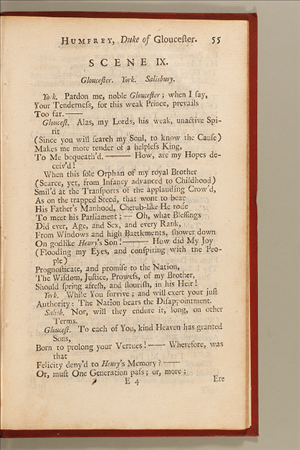 HUMFREY, Duke of Gloucester. 55
SCENE IX.
Gloucester. York. Salisbury.
York. Pardon me, noble Gloucester; when I say,
Your Tenderness, for this weak Prince, prevails
Too far.——
Glocest. Alas, my Lords, his weak, unactive Spi-
rit
(Since you will search my Soul, to know the Cause)
Makes me more tender of a helpless King,
To Me bequeath'd. —— How, are my Hopes de-
ceiv'd!
When this sole Orphan of my royal Brother
(Scarce, yet, from Infancy advanced to Childhood)
Smil'd at the Transports of the applauding Crow'd,
As on the trapped Steed, that wont to bear
His Father's Manhood, Cherub-like He rode
To meet his Parliament; — Oh, what Blessings
Did ever, Age, and Sex, and every Rank,
From Windows and high Battlements, shower down
On godlike Henry's Son! —— How did My Joy
(Flooding my Eyes, and conspiring with the Peo-
ple)
Prognosticate, and promise to the Nation,
The Wisdom, Justice, Prowess, of my Brother,
Should spring afresh, and flourish, in his Heir!
York. While You survive; and will exert your just
Authority: The Nation bears the Disappointment.
Salisb. Nor, will they endure it, long, on other
Terms.
Glocest. To each of You, kind Heaven has granted
Sons,
Born to prolong your Vertues! —— Wherefore, was
that
Felicity deny'd to Henry's Memory? ——
Or, must One Generation pass; or, more;
E 4 Ere